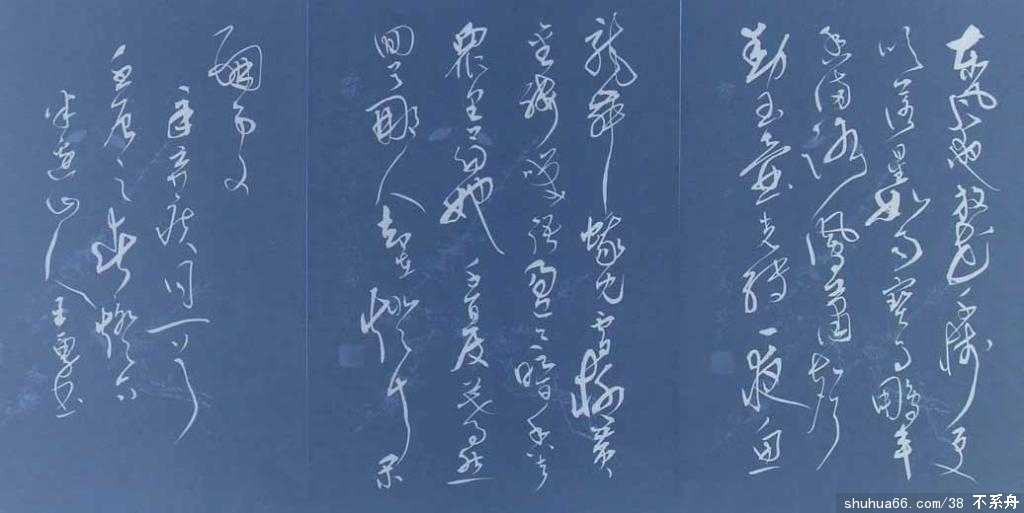 东风夜放花千树更
吹落星如雨宝马雕车
香满路凤箫声
动玉壶光转一夜鱼
龙舞蛾儿雪柳黄
金缕笑语盈盈暗香去
众里寻她千百度蓦然
回首那人却在灯火阑
珊处
辛弃疾词一首
之春灯下
山人王书
shuhua66.com/38 不系舟